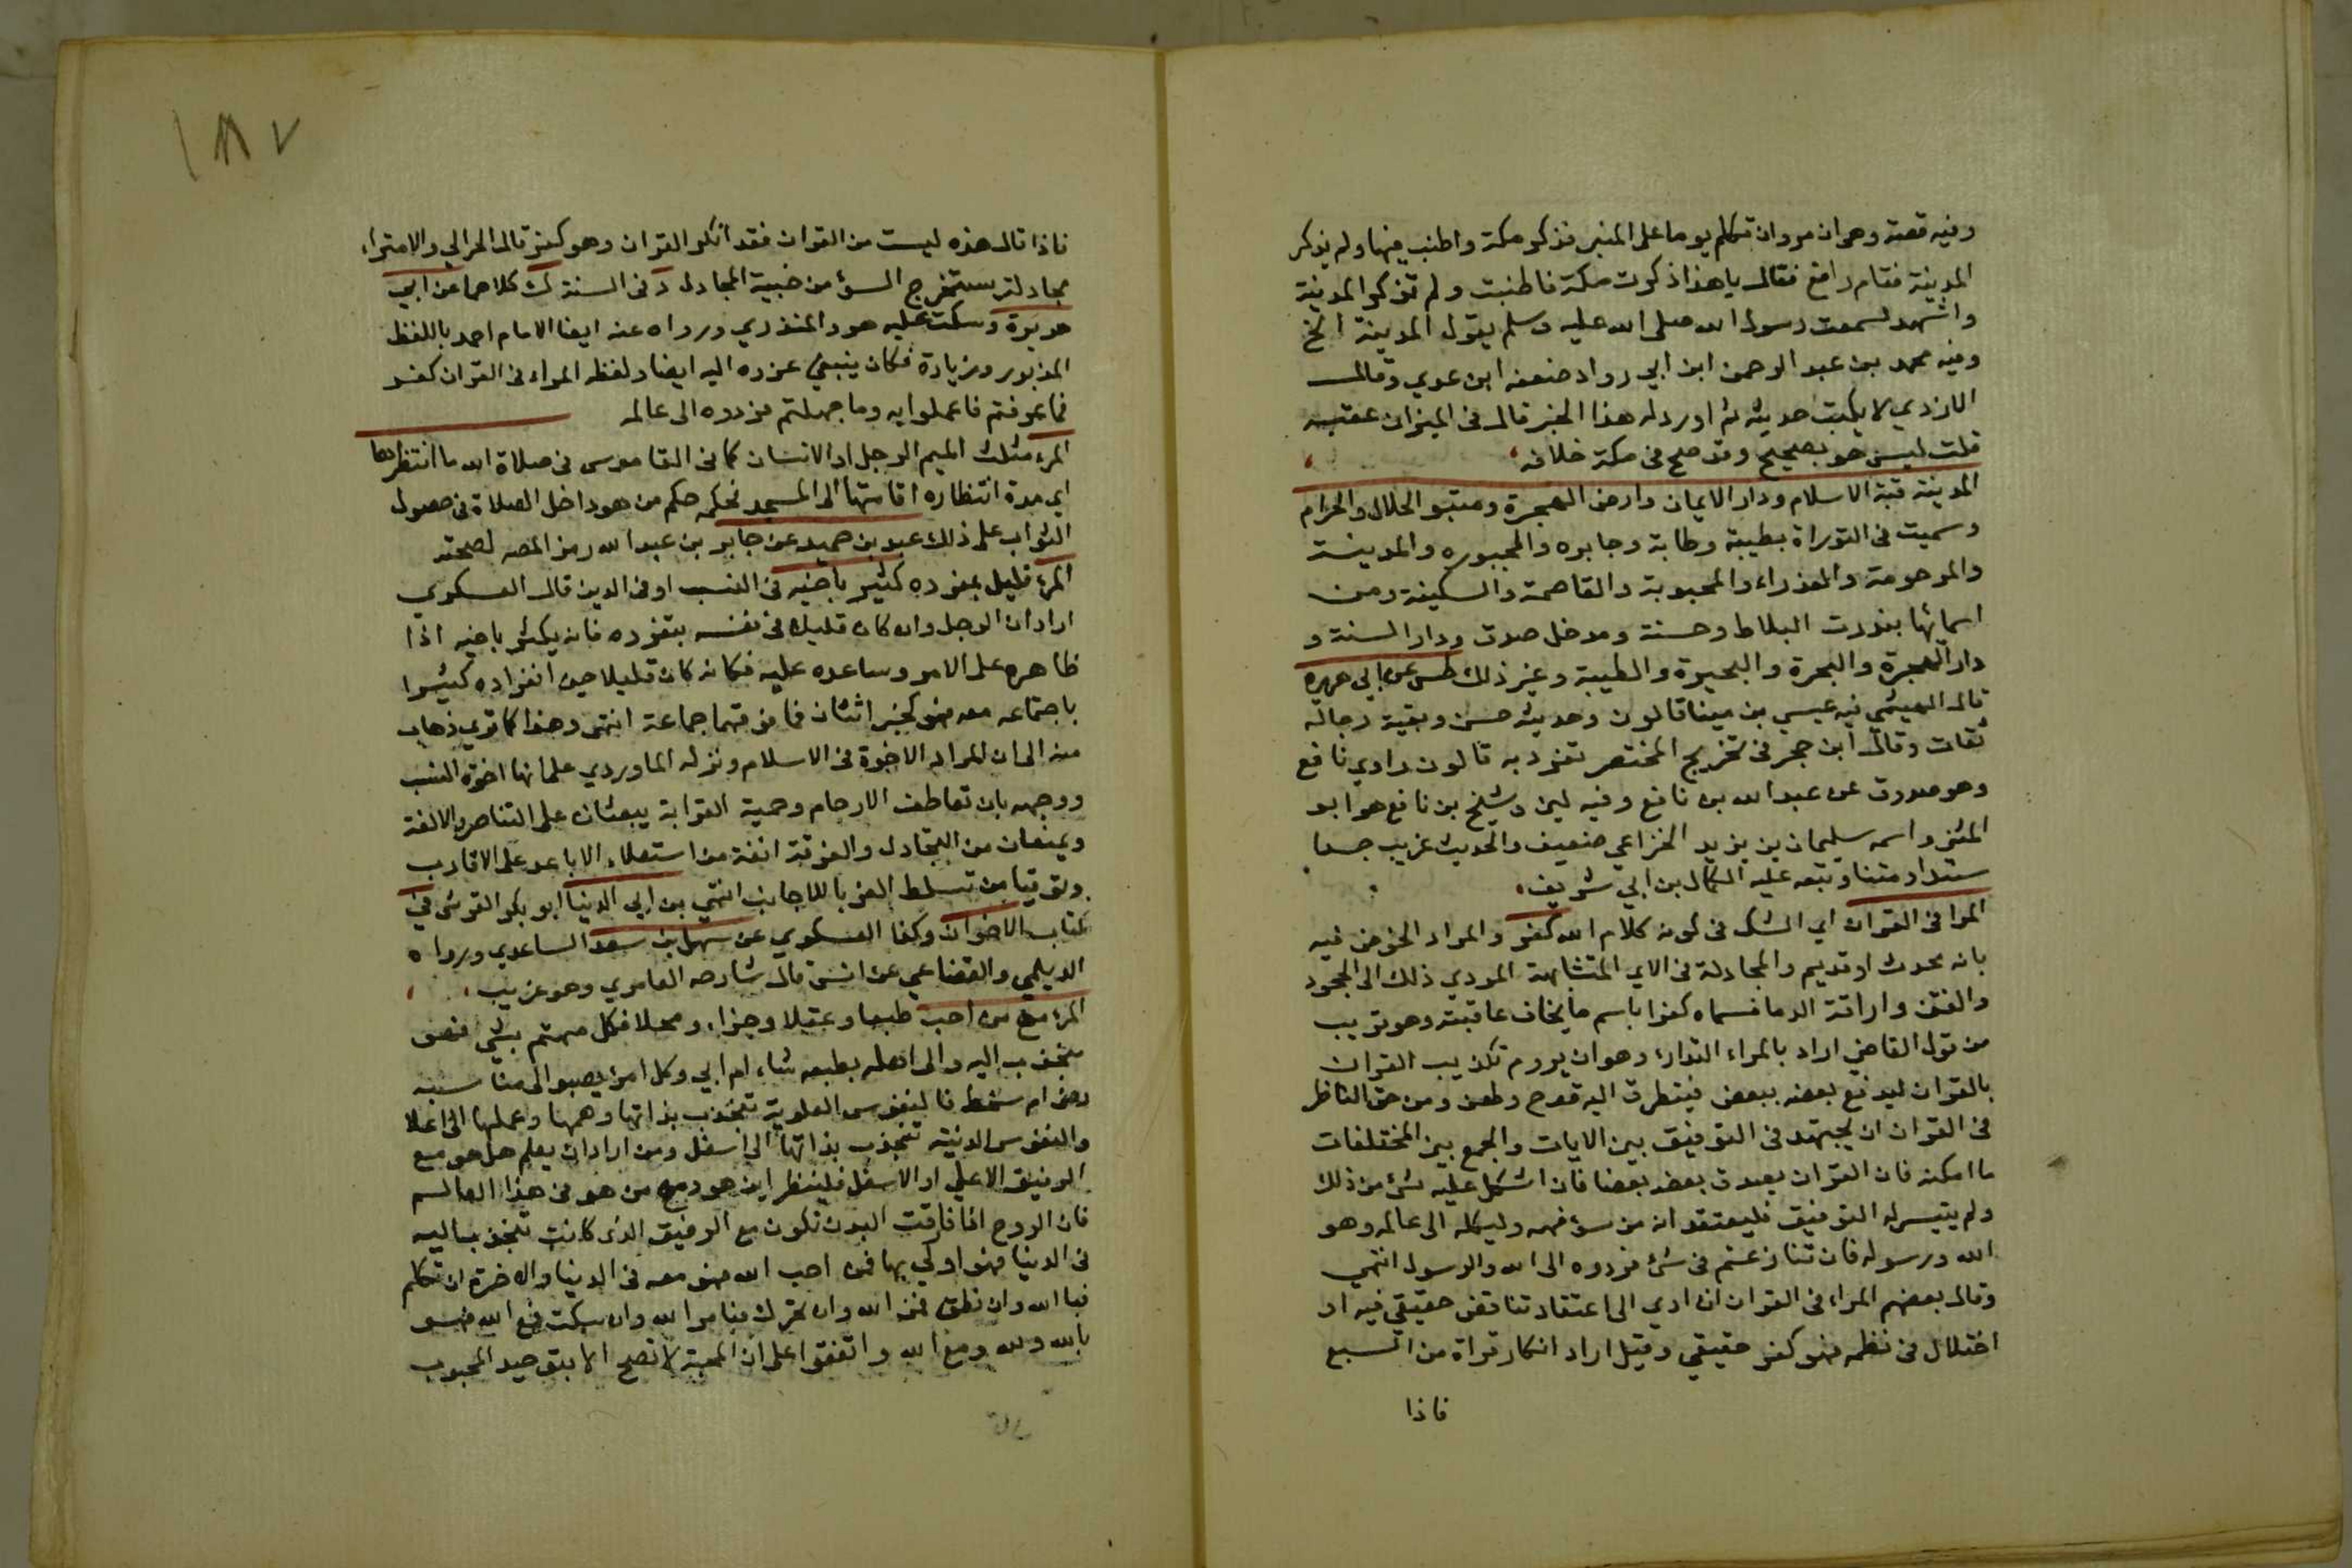 وفيه قصة وهو ان مروان تكلم يوما على المنبر فذكر مكة واطنب فيها ولم يذكر
المدينة فقام رافع فقال يا هذا ذكرت مكة فاطنبت ولم تذكر المدينة
واشهد لسمعت رسول الله صلى الله عليه وسلم يقول المدينة الخ
وفيه محمد بن عبد الرحمن ابن ابي رواد ضعفه ابن عدي وقال
الازدي لا يكتب حديثه ثم اورد له هذا الخبر قال في الميزان عقبه
قلت ليس هو بصحيح وقد صح في مكة خلافه
المدينة قبة الاسلام ودار الايمان وارض الهجرة ومتبو الحلال والحرام
وسميت في التوراة بطيبة وطابة وجابره والمجبوره والمدينة
والمرحومة والعذراء والمحبوبة والقاصمة والسكينة ومن
اسمائها بندرت البلاط وحسنة ومدخل صدق ودار السنة و
دار الهجرة والبحرة والبحيرة والطيبة وغير ذلك طس عن ابي هريرة
قال الهيثمي فيه عيسى بن مينا قالون وحديثه حسن وبقية رجاله
ثقات وقال ابن حجر في تخريج المختصر تفرد به قالون راوي نافع
وهو صدوق عن عبد الله بن نافع وفيه لين وشيخ بن نافع هو ابو
المثنى واسمه سليمان بن يزيد الخزاعي ضعيف والحديث غريب جدا
سندا ومتنا وتبعه عليه الكمال بن ابي شريف
المرا في القران اي الشك في كونه كلام الله كفر والمراد الخوض فيه
بانه محدث او قديم والمجادلة في الاي المتشابهة المودي ذلك الى الجحود
والفتن واراقة الدما فسماه كفرا باسم ما يخاف عاقبته وهو قريب
من قول القاضي اراد بالمراء التدارء وهو ان يروم تكذيب القران
بالقران ليدفع بعضه ببعض فيتطرق اليه قدح وطعن ومن حق الناظر
في القران ان يجتهد في التوفيق بين الايات والجمع بين المختلفات
ما امكنه فان القران يصدق بعضه بعضا فان اشكل عليه شئ من ذلك
ولم يتيسر له التوفيق فليعتقد انه من سؤ فهمه وليكله الى عالمه وهو
الله ورسوله فان تنازعتم في شئ فردوه الى الله والرسول انتهى
وقال بعضهم المراء في القران ان ادي الى اعتقاد تناقض حقيقي فيه او
اختلال في نظمه فهو كفر حقيقي وقيل اراد انكار قراة من السبع
فاذا
١٨٧
فاذا قال هذه ليست من القران فقد انكر القران وهو كفر قال الحرالي والامتراء
مجادلة تستخرج السؤ من خبيئة المجادل د في السنة ك كلاهما عن ابي
هريرة وسكت عليه هو والمنذري ورواه عنه ايضا الامام احمد باللفظ
المزبور وزيادة فكان ينبغي عزوه اليه ايضا ولفظه المراء في القران كفر
فما عرفتم فاعملوا به وما جهلتم فردوه الى عالمه
المرء مثلث الميم الرجل او الانسان كما في القاموس في صلاة الله ما انتظرها
اي مدة انتظاره اقامتها الى المسجد فحكمه حكم من هو داخل الصلاة في حصول
الثواب على ذلك عبد بن حميد عن جابر بن عبد الله رمز المصه لصحته
المرء قليل بمفرده كثير باخيه في النسب او في الدين قال العسكري
اراد ان الرجل وان كان قليلا في نفسه بتفرده فانه يكثر باخيه اذا
ظاهره على الامر وساعده عليه فكانه كان قليلا حين انفراده كثيرا
باجتماعه معه فهو كخبر اثنان فما فوقهما جماعة انتهى وهذا كما ترى ذهاب
منه الى ان المراد الاخوة في الاسلام ونزله الماوردي على انها اخوة النسب
ووجهه بان تعاطف الارحام وحمية القرابة يبعثان على التناصر والالفة
ويمنعان من التخاذل والفرقة انفة من استعلاء الاباعد على الاقارب
وتوقيا من تسلط الغربا الاجانب انتهى بن ابي الدنيا ابو بكر القرشي في
كتاب الاخوان وكذا العسكري عن سهل بن سعد الساعدي ورواه
الديلمي والقضاعي عن انس قال شارحه العامري وهو غريب
المرء مع من احب طبعا وعقلا وجزاء ومحلا فكل مهتم بشئ فهو
منجذب اليه والى اهله بطبعه شاء ام ابي وكل امرئ يصبو الى مناسبه
رضي ام سخط فالنفوس العلوية تنجذب بذاتها وهمها وعملها الى اعلا
والنفوس الدنية تنجذب بذاتها الى اسفل ومن اراد ان يعلم هل هو مع
الرفيق الاعلى او الاسفل فلينظر اين هو ومع من هو في هذا العالم
فان الروح اذا فارقت البدن تكون مع الرفيق الذي كانت تنجذب اليه
في الدنيا فهو اولى بها فمن احب الله فهو معه في الدنيا والاخرة ان تكلم
فبالله وان نطق فمن الله وان تحرك فبامر الله وان سكت فمع الله فهو
بالله ولله ومع الله واتفقوا على ان المحبة لا تصح الا بتوحيد المحبوب